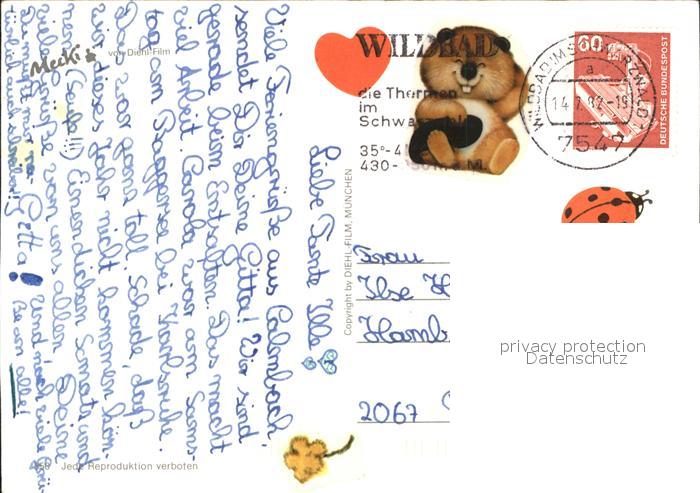 Mecki
von Diehl-Film
Liebe Tante Ille!
Viele Feriengrüße aus Calmbach,
sendet Dir Deine Gitta! Wir sind
gerade beim Entsaften. Das macht
viel Arbeit. Carola war am Sams-
tag am Baggersee bei Karlsruhe.
Das war ganz toll. Schade, daß
wir dieses Jahr nicht kommen kön-
nen. (Seufz!!!) Einen dicken Schmatz und
viele Grüße von uns allen Deine
Gitta!
Und noch viele Grü-
Be an alle!
458 Jede Reproduktion verboten
Copyright by DIEHL-FILM, MÜNCHEN
WILDBAD
die Thermen
im
Schwarzwald
35°-4
430-
WILDBAD IM SCHWARZWALD 1
a
14.7.82-19
7547
60
DEUTSCHE BUNDESPOST
Frau
Ilse H
Hamb
2067
privacy protection
Datenschutz